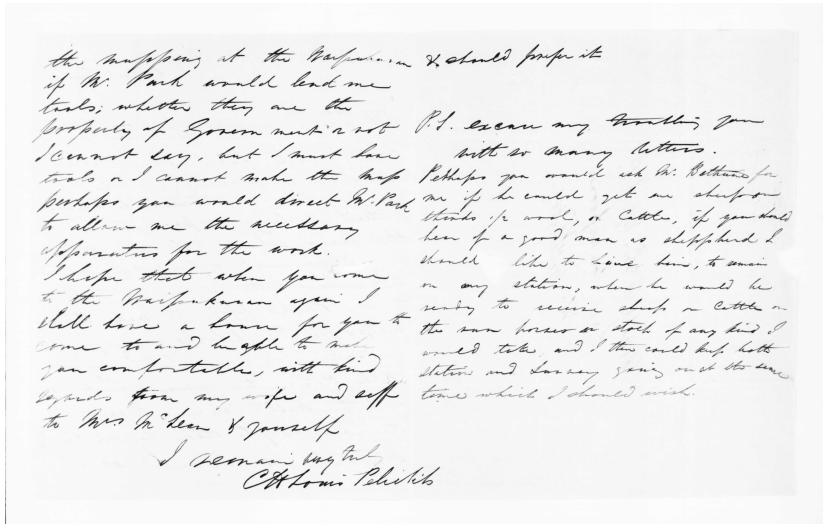 the mapping at the Waipukurau & should prefer it
if Mr. Park would lend me
tools; whether they are the
property of Government or not
I cannot say, but I must have
tools or I cannot make the map
perhaps you would direct Mr. Park
to allow me the necessary
apparatus for the work.
I hope that when you come
to the Waipukurau again I
shall have a house for you to
come to and be able to make
you comfortable, with kind
regards from my wife and self
to Mrs McLean & yourself
I remain very truly
C H Louis Pelichet
P.S. excuse my troubling you
with so many letters.
Pethaps you would ask Mr. Bethune for
me if he could get me sheep on
thirds of wool, or Cattle, if you should
hear of a good man as sheppherd I
should like to have him, to remain
on my station, when he would be
ready to receive sheep or Cattle on
the run horses or stock of any kind I
would take, and I then could keep both
station and survey going on at the same
time which I should wish.